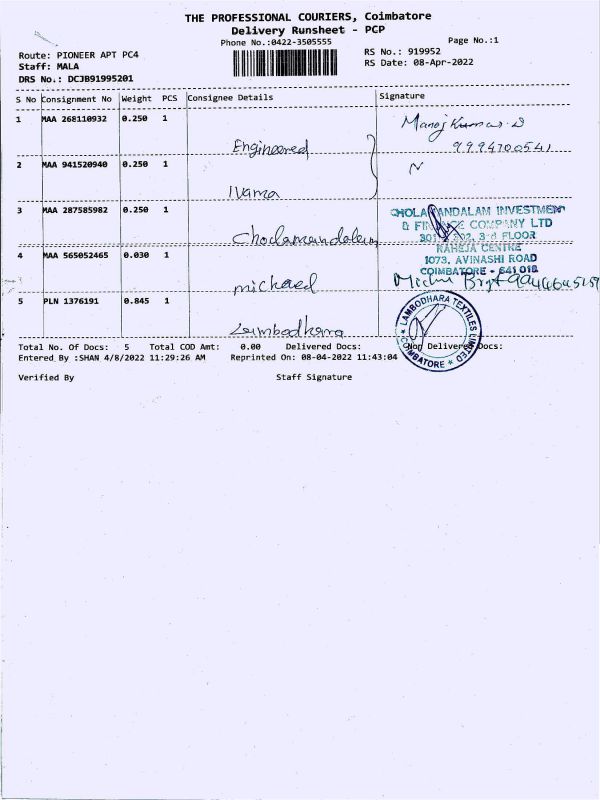 THE PROFESSIONAL COURIERS, Coimbatore
Delivery Runsheet - PCP
Phone No.:0422-3505555
Page No.:1
Route: PIONEER APT PC4
RS No.: 919952
Staff: MALA
RS Date: 08-Apr-2022
DRS No.: DCJB91995201
S No Consignment No Weight PCS Consignee Details Signature
1 MAA 268110932 0.250 1 Engineered Manoj Kumar.D
9994700541
2 MAA 941520940 0.250 1
3 MAA 287585982 0.250 1 Cholamandalam
CHOLAMANDALAM INVESTMENT
& FINANCE COMPANY LTD
301 & 302, 3rd FLOOR
RAHEJA CENTRE
1073, AVINASHI ROAD
COIMBATORE - 641 018
4 MAA 565052465 0.030 1 michael
5 PLN 1376191 0.845 1
LAMBODHARA TEXTILES LIMITED
* COIMBATORE *
Total No. Of Docs: 5 Total COD Amt: 0.00 Delivered Docs: Non Delivered Docs:
Entered By :SHAN 4/8/2022 11:29:26 AM Reprinted On: 08-04-2022 11:43:04
Verified By Staff Signature